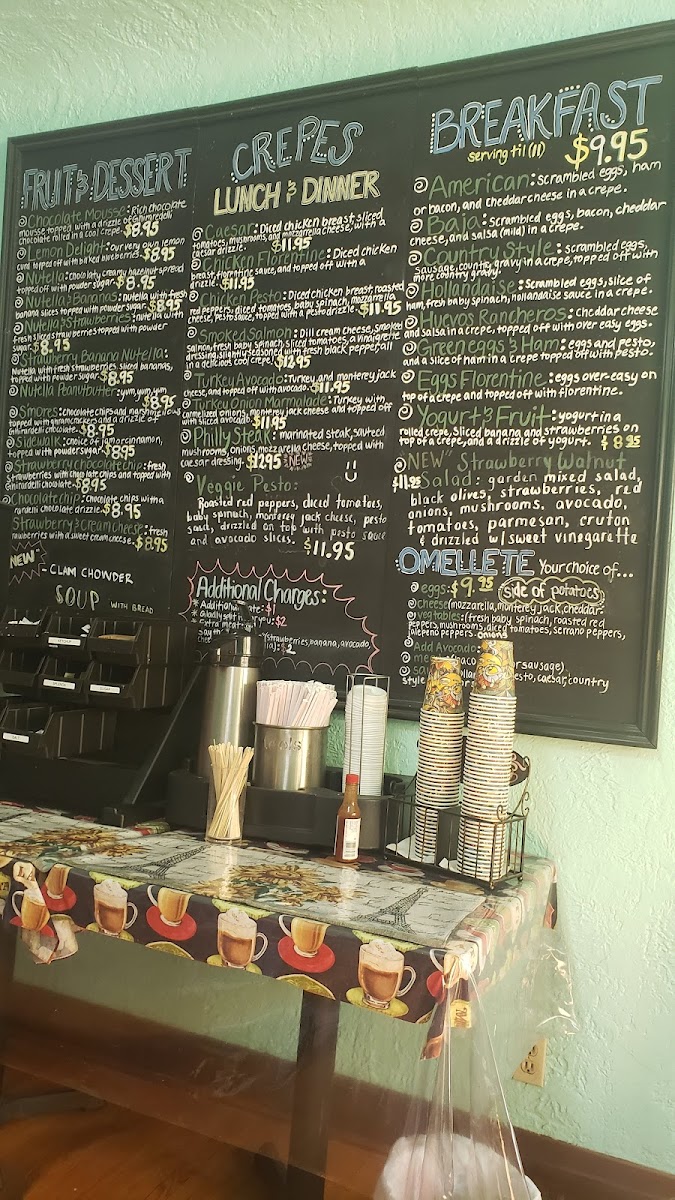 FRUIT & DESSERT
Chocolate Mousse: Rich chocolate
mousse topped with a drizzle of Ghirardelli
chocolate rolled in a cool crepe. $8.95
Lemon Delight: our very own lemon
curd topped off with baked blueberries $8.95
Nutella: chocolaty creamy hazelnut spread
topped off with powder sugar. $8.95
Nutella & Bananas: nutella with fresh
banana slices topped with powder sugar. $8.95
Nutella & Strawberries: nutella with
fresh sliced strawberries topped with powder
sugar. $8.95
Strawberry Banana Nutella:
Nutella with fresh strawberries, sliced bananas,
topped with powder sugar. $8.95
Nutella Peanutbutter: yum, yum, yum
$8.95
Smores: chocolate chips and marshmellows
topped with grahmcrackers and a drizzle of
Ghirardelli chocolate. $8.95
Sidewalk: choice of jam or cinnamon,
topped with powder sugar. $8.95
Strawberry chocolate chip: fresh
strawberries with chocolate chips and topped with
Ghirardelli chocolate. $8.95
Chocolate chip: chocolate chips with a
chocolate drizzle. $8.95
Strawberry & Cream cheese: fresh
strawberries with a sweet cream cheese. $8.95
NEW
- CLAM CHOWDER
SOUP WITH BREAD
CREPES
LUNCH & DINNER
Caesar: Diced chicken breast, sliced
tomatoes, mushrooms, and mozzarella cheese, with a
caesar drizzle. $11.95
Chicken Florentine: Diced chicken
breast, florentine sauce, and topped off with a
drizzle. $11.95
Chicken Pesto: Diced chicken breast, roasted
red peppers, diced tomatoes, baby spinach, mozzarella
cheese, pesto sauce, topped with a pesto drizzle. $11.95
Smoked Salmon: Dill cream cheese, smoked
salmon, fresh baby spinach, sliced tomatoes, a vinaigrette
dressing, slightly seasoned with fresh black pepper, all
in a delicious cool crepe. $12.95
Turkey Avocado: Turkey and monterey jack
cheese, and topped off with avocado. $11.95
Turkey Onion Marmalade: Turkey with
carmelized onions, monterey jack cheese and topped off
with sliced avocado. $11.95
Philly Steak: marinated steak, sauteed
mushrooms, onions, mozzarella cheese, topped with
caesar dressing. $12.95 NEW
Veggie Pesto:
Roasted red peppers, diced tomatoes,
baby spinach, monterey jack cheese, pesto
sauce, drizzled on top with pesto sauce
and avocado slices. $11.95
Additional Charges:
* Additional plate: $1
* Gladly split it for you: $2
* Extra meat:
(strawberries, banana, avocado,
$2
BREAKFAST
serving til (11) $9.95
American: scrambled eggs, ham
or bacon, and cheddar cheese in a crepe.
Baja: scrambled eggs, bacon, cheddar
cheese, and salsa (mild) in a crepe.
Country Style: scrambled eggs,
sausage, country gravy in a crepe, topped off with
more country gravy.
Hollandaise: scrambled eggs, slice of
ham, fresh baby spinach, hollandaise sauce in a crepe.
Huevos Rancheros: cheddar cheese
and salsa in a crepe, topped off with over easy eggs.
Green eggs & Ham: eggs and pesto,
and a slice of ham in a crepe topped off with pesto.
Eggs Florentine: eggs over-easy on
top of a crepe and topped with florentine.
Yogurt & Fruit: yogurt in a
rolled crepe, sliced banana and strawberries on
top of a crepe, and a drizzle of yogurt. $8.95
"NEW" Strawberry Walnut
$11.95 Salad: garden mixed salad,
black olives, strawberries, red
onions, mushrooms, avocado,
tomatoes, parmesan, cruton
& drizzled w/ sweet vinegarette
OMELLETE Your choice of...
eggs: $9.95 side of potatoes
cheese (mozzarella, monterey jack, cheddar
vegtables: (fresh baby spinach, roasted red
peppers, mushrooms, diced tomatoes, serrano peppers,
jalepeno peppers. onions
Add Avocado:
or sausage)
pesto, caesar, country
style